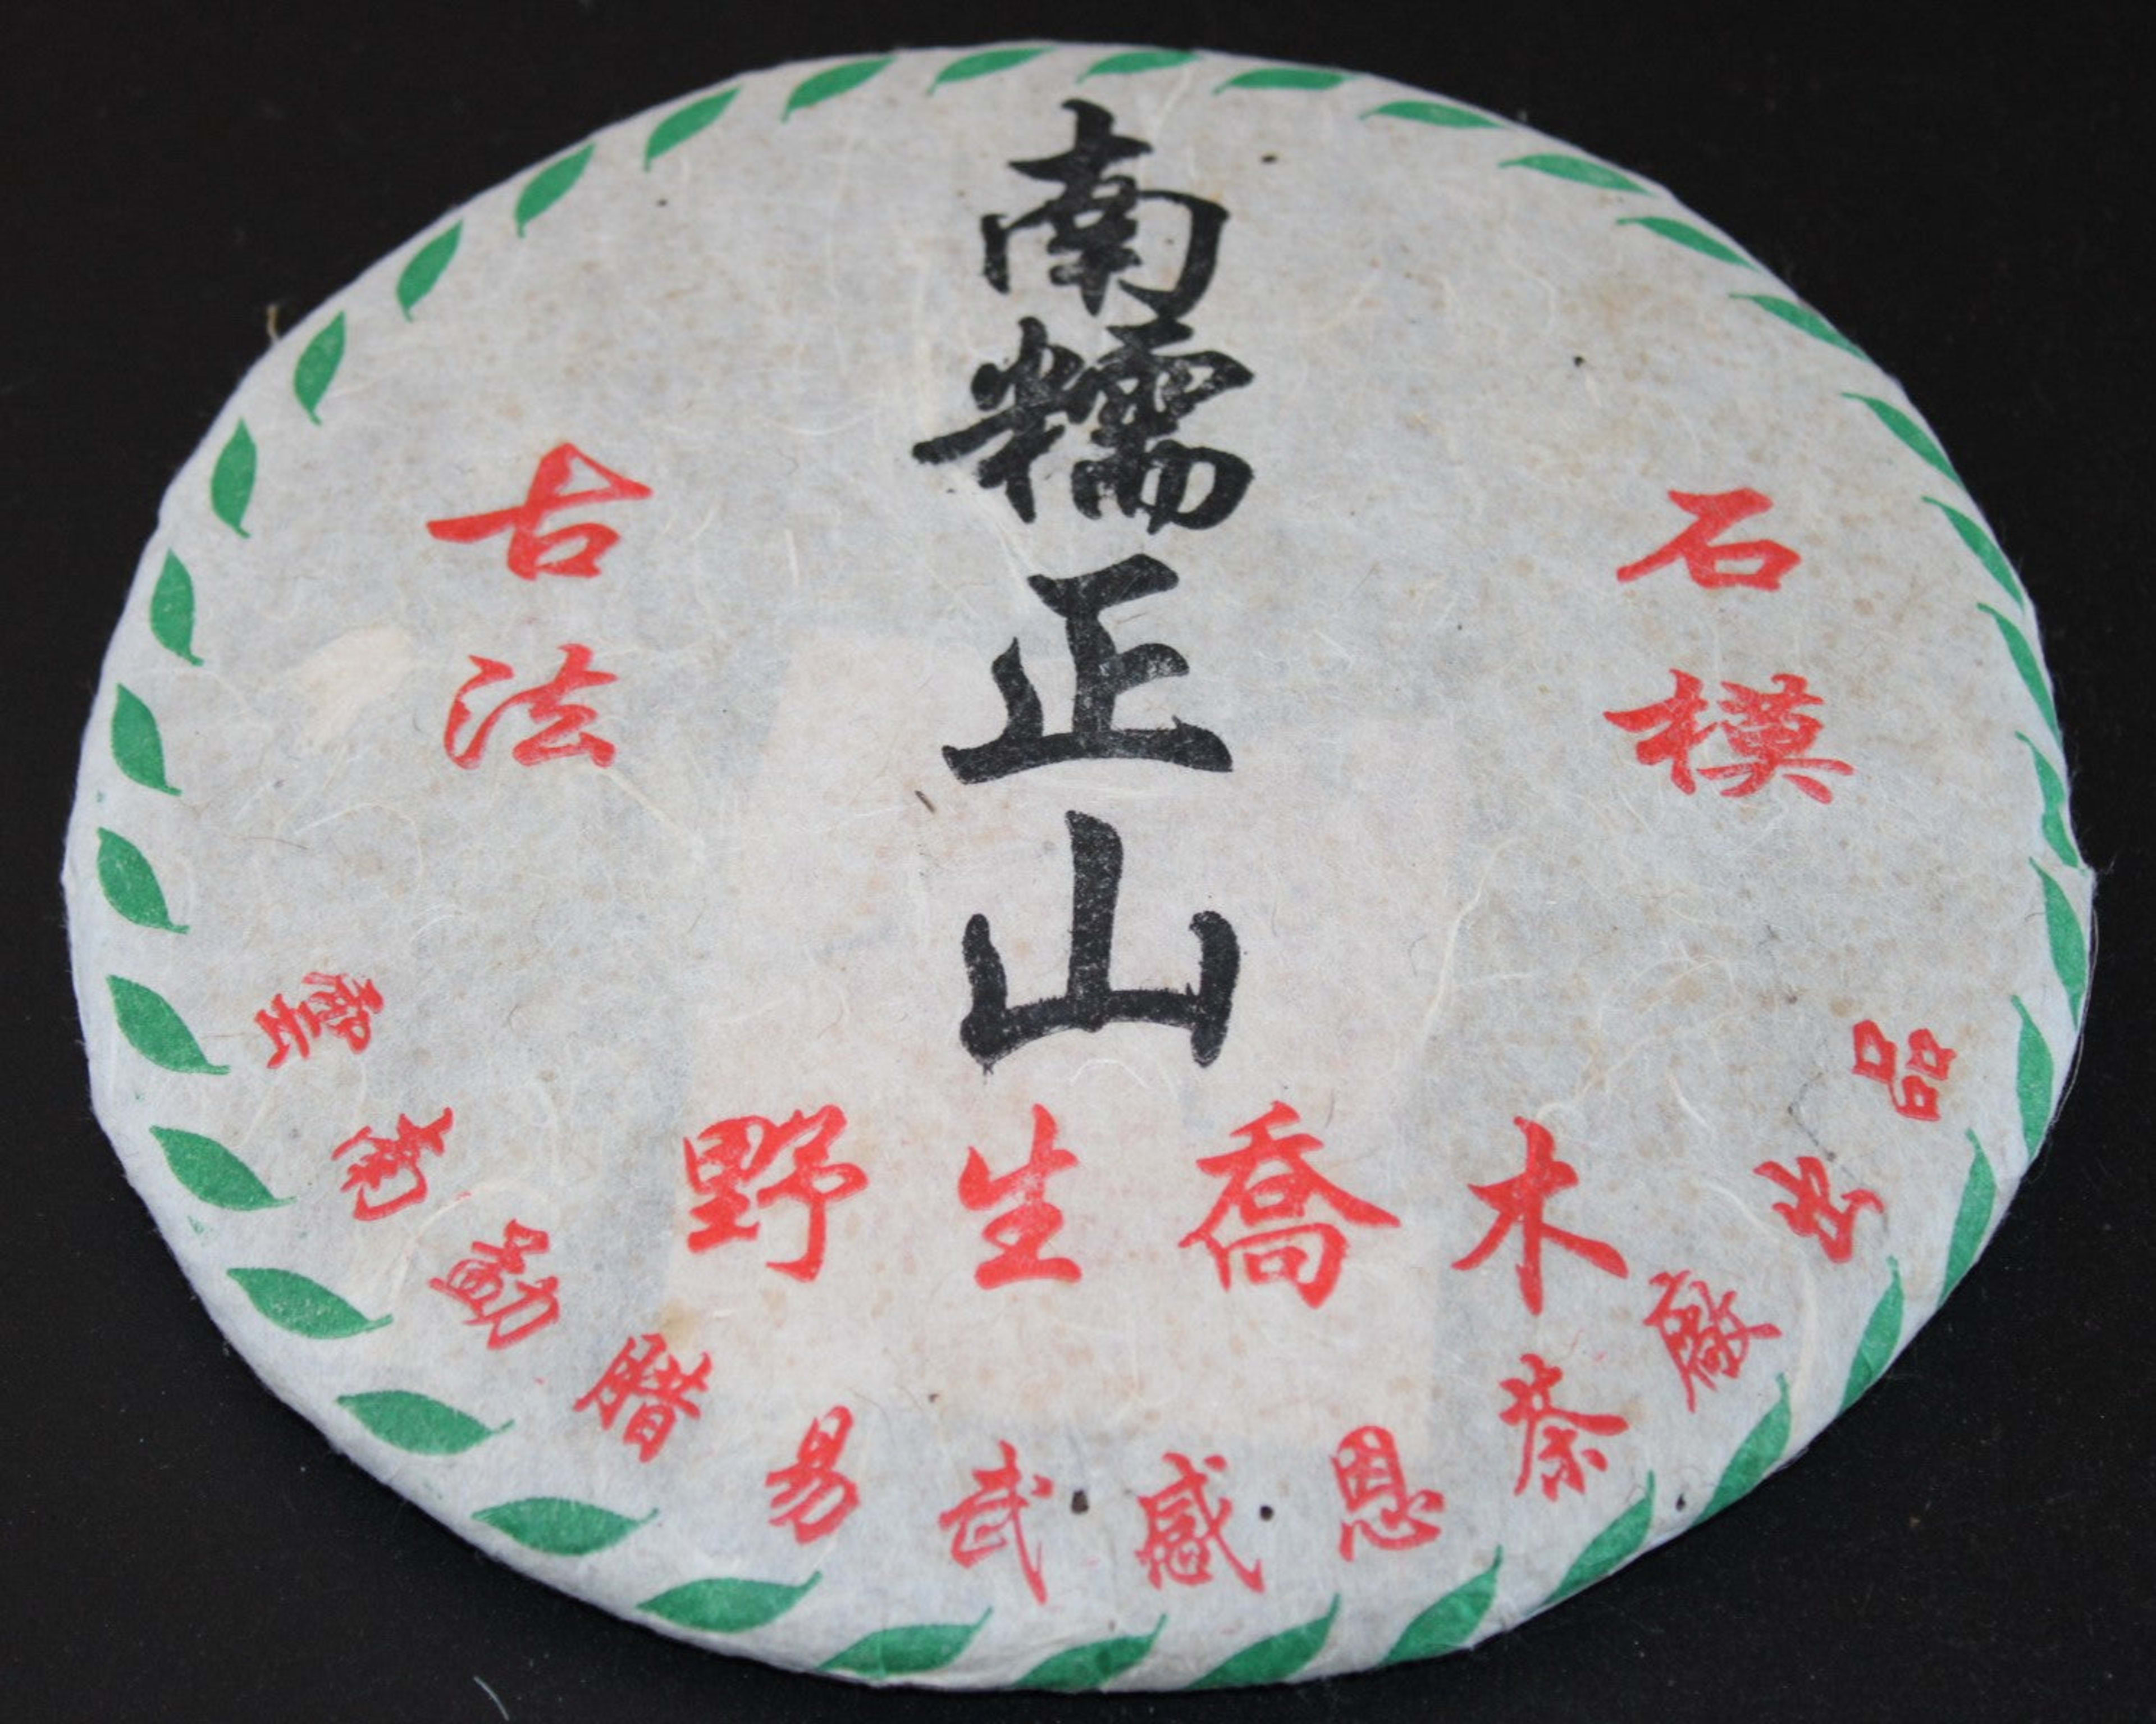 南糯正山
古法
石模
野生喬木
雲南勐腊易武感恩茶廠出品